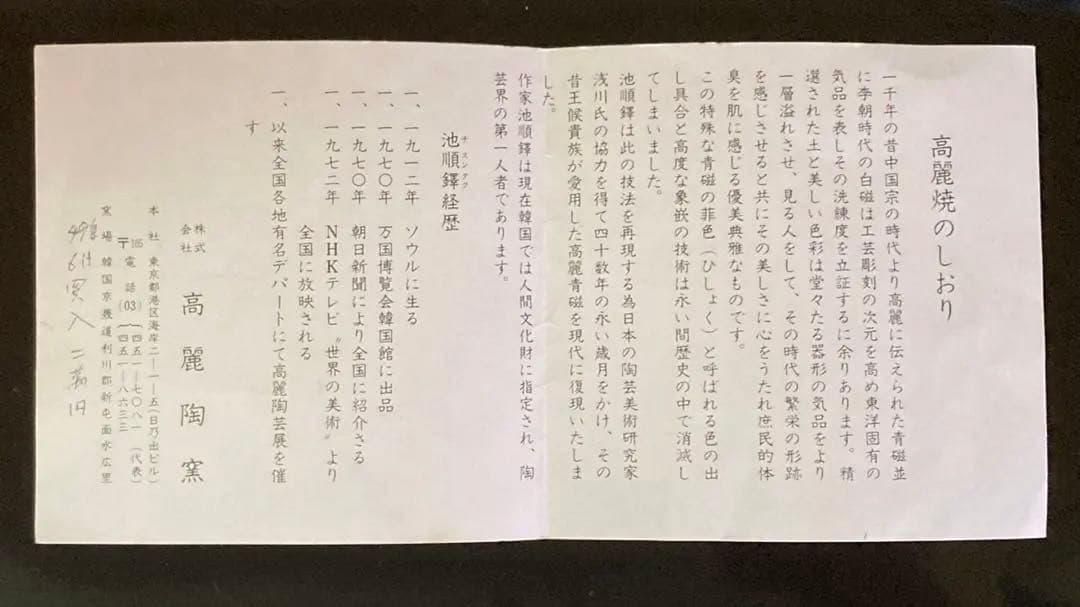 高麗焼のしおり
一千年の昔中国宗の時代より高麗に伝えられた青磁並
に李朝時代の白磁は工芸彫刻の次元を高め東洋固有の
気品を表しその洗練度を立証するに余りあります。精
選された土と美しい色彩は堂々たる器形の気品をより
一層溢れさせ、見る人をして、その時代の繁栄の形跡
を感じさせると共にその美しさに心をうたれ庶民的体
臭を肌に感じる優美典雅なものです。
この特殊な青磁の菲色(ひしょく)と呼ばれる色の出
し具合と高度な象嵌の技術は永い間歴史の中で消滅し
てしまいました。
池順鐸は此の技法を再現する為日本の陶芸美術研究家
浅川氏の協力を得て四十数年の永い歳月をかけ、その
昔王候貴族が愛用した高麗青磁を現代に復現いたしま
した。
作家池順鐸は現在韓国では人間文化財に指定され、陶
芸界の第一人者であります。
池順鐸経歴
チスンテク
一、一九一二年 ソウルに生る
一、一九七〇年 万国博覧会韓国館に出品
一、一九七〇年 朝日新聞により全国に紹介さる
一、一九七二年 NHKテレビ〝世界の美術〟より
全国に放映される
一、以来全国各地有名デパートにて高麗陶芸展を催
す
株式会社 高麗陶窯
本社 東京都港区海岸二—一—五(日乃出ビル)
〒105 電話(03)(四五一—七〇八一(代表)
四五一—八六三三
窯場 韓国京畿道利川郡新屯面水広里
6月買入 二萬円